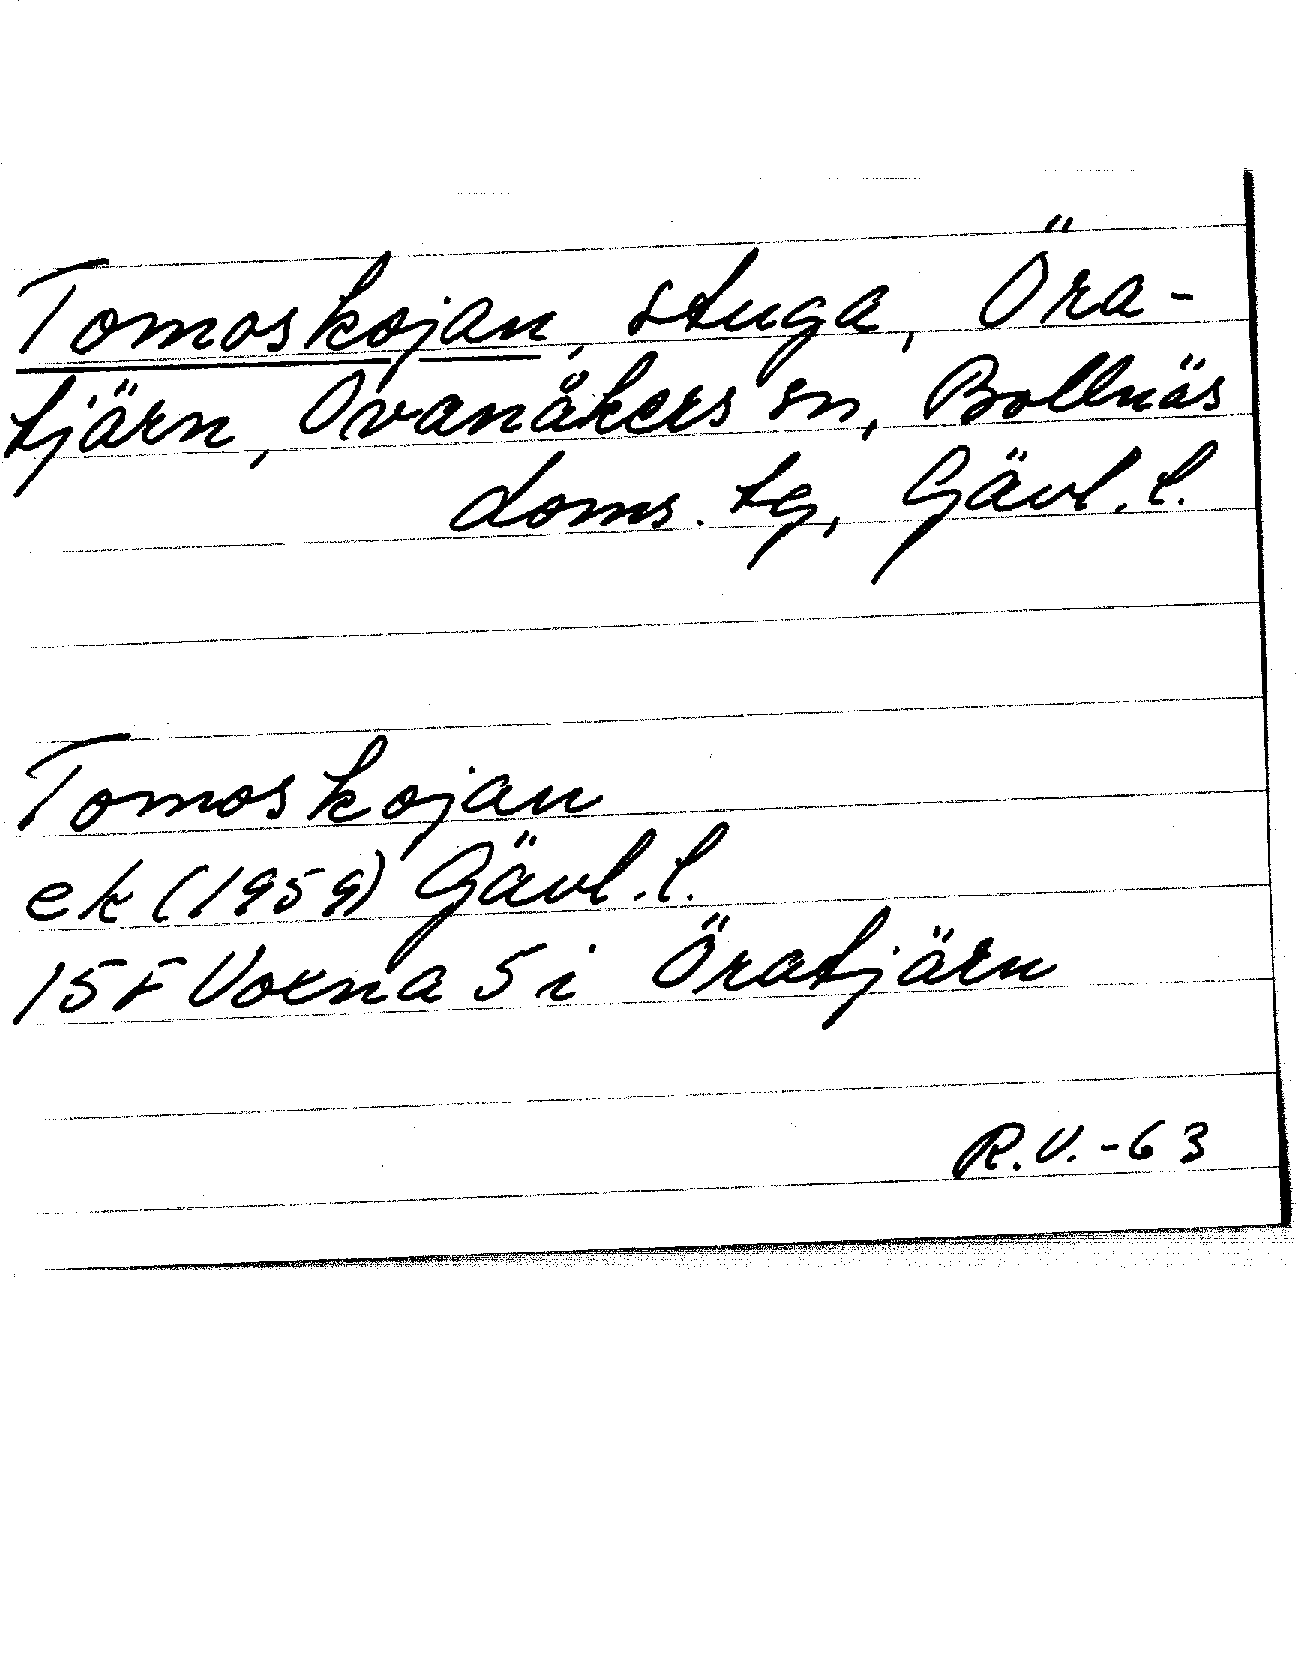 Tomoskojan, stuga, Öra-
tjärn, Ovanåkers sn, Bollnäs
doms. tg, Gävl. l.
Tomoskojan
ek (1959) Gävl. l.
15F Voxna 5 i Öratjärn
R.V. -63